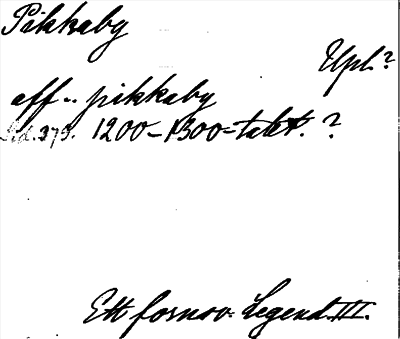 Pikkaby
Upl.?
aff .. pikkaby
Sid. 379. 1200-1300-talet. ?
Ett fornsv. Legend. III.